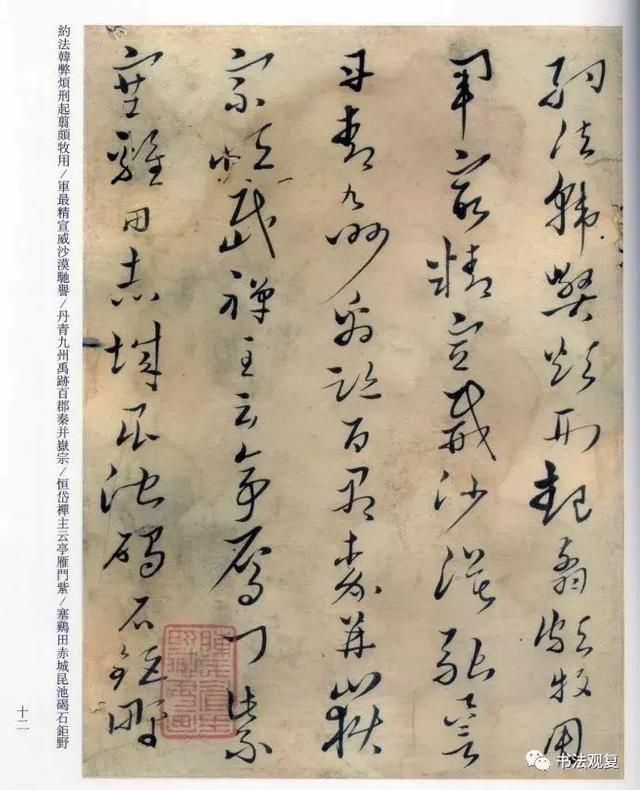 約法韓弊煩刑起翦頗牧用
軍最精宣威沙漠馳譽
丹青九州禹跡百郡秦并嶽
宗恒岱禪主云亭雁門紫
塞雞田赤城昆池碣石鉅野
約法韓弊煩刑起翦頗牧用/軍最精宣威沙漠馳譽/丹青九州禹跡百郡秦并嶽宗/恒岱禪主云亭雁門紫/塞鷄田赤城昆池碣石鉅野
十二
书法观复